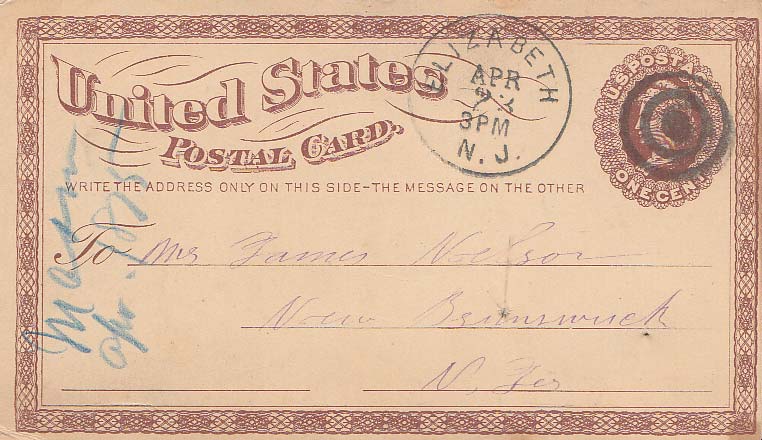 United States
POSTAL CARD.
WRITE THE ADDRESS ONLY ON THIS SIDE–THE MESSAGE ON THE OTHER
ELIZABETH
APR
3PM
N. J.
U.S. POSTAGE
ONE CENT
To Mr James Neilson
New Brunswick
N. Jer
Apr. 1875